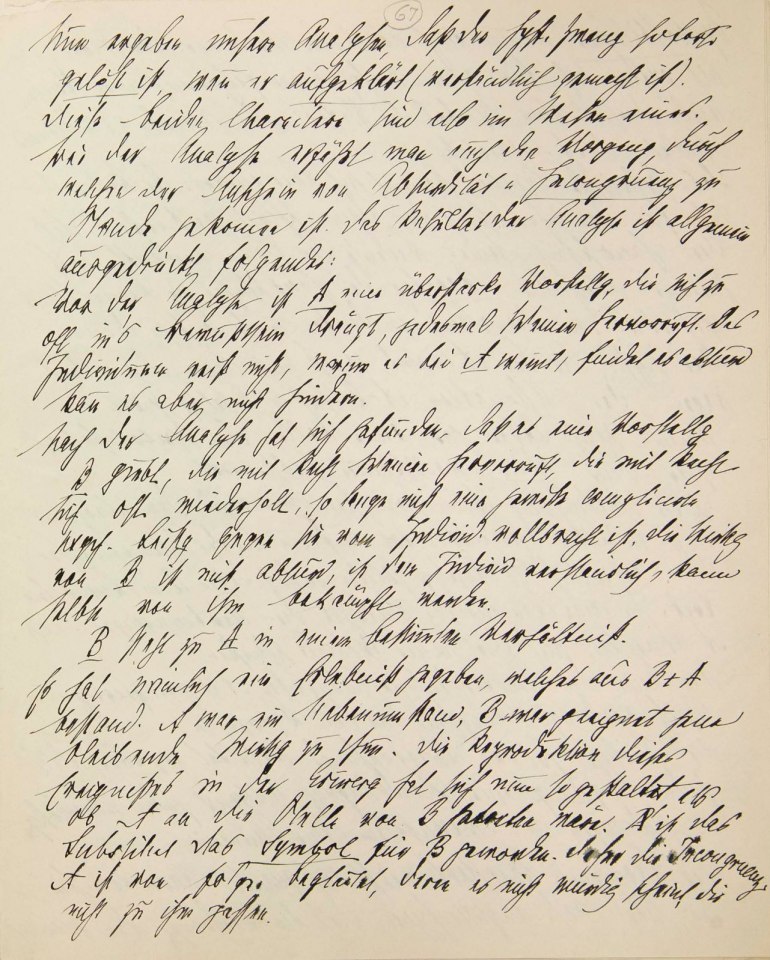 67
Nun ergeben unsere Analysen, daß der hyst. Zwang sofort
gelöst ist, wenn er aufgeklärt (verständlich gemacht ist).
Diese beiden Charaktere sind also im Wesen eines.
Bei der Analyse erfährt man auch den Vorgang, durch
welchen der Anschein von Absurdität u Incongruenz zu
Stande gekommen ist. Das Resultat der Analyse ist allgemein
ausgedrückt folgendes:
Vor der Analyse ist A eine überstarke Vorstellg, die sich zu
oft ins Bewußtsein drängt, jedesmal Weinen hervorruft. Das
Individuum weiß nicht, warum es bei A weint, findet es absurd
kann es aber nicht hindern.
Nach der Analyse hat sich gefunden, daß es eine Vorstellg
B giebt, die mit Recht Weinen hervorruft, die mit Recht
sich oft wiederholt, so lange nicht eine gewisse complicirte
psych. Leistg gegen sie vom Individ. vollbracht ist. Die Wirkg
von B ist nicht absurd, ist dem Individ verständlich, kann
selbst von ihm bekämpft werden.
B steht zu A in einem bestimmten Verhältniß.
Es hat nämlich ein Erlebniß gegeben, welches aus B+A
bestand. A war ein Nebenumstand, B war geeignet jene
bleibende Wirkg zu thun. Die Reproduktion dieses
Ereignisses in der Erinnerg hat sich nun so gestaltet als
ob A an die Stelle von B getreten wäre. A ist das
Substitut das Symbol für B geworden. Daher die Incongruenz,
A ist von Folgen begleitet, deren es nicht würdig scheint, die
nicht zu ihm passen.